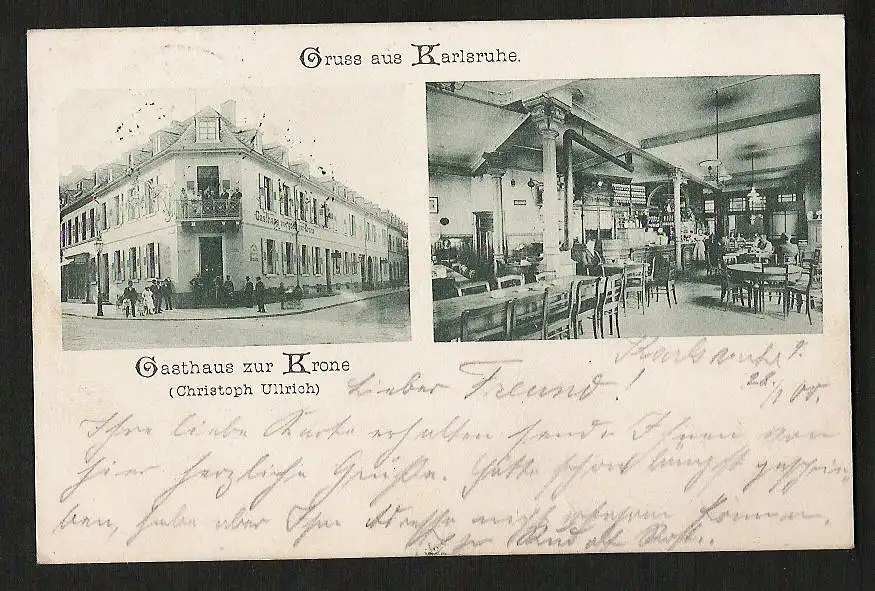 Gruss aus Karlsruhe.
Gasthaus zur Krone
Gasthaus zur Krone
(Christoph Ullrich)
Karlsruhe
28/ 00.
Lieber Freund!
Ihre liebe Karte erhalten sende Ihnen von
hier herzliche Grüße. Hätte schon längst geschrie-
ben, habe aber Ihre Adresse nicht können.
Ihr